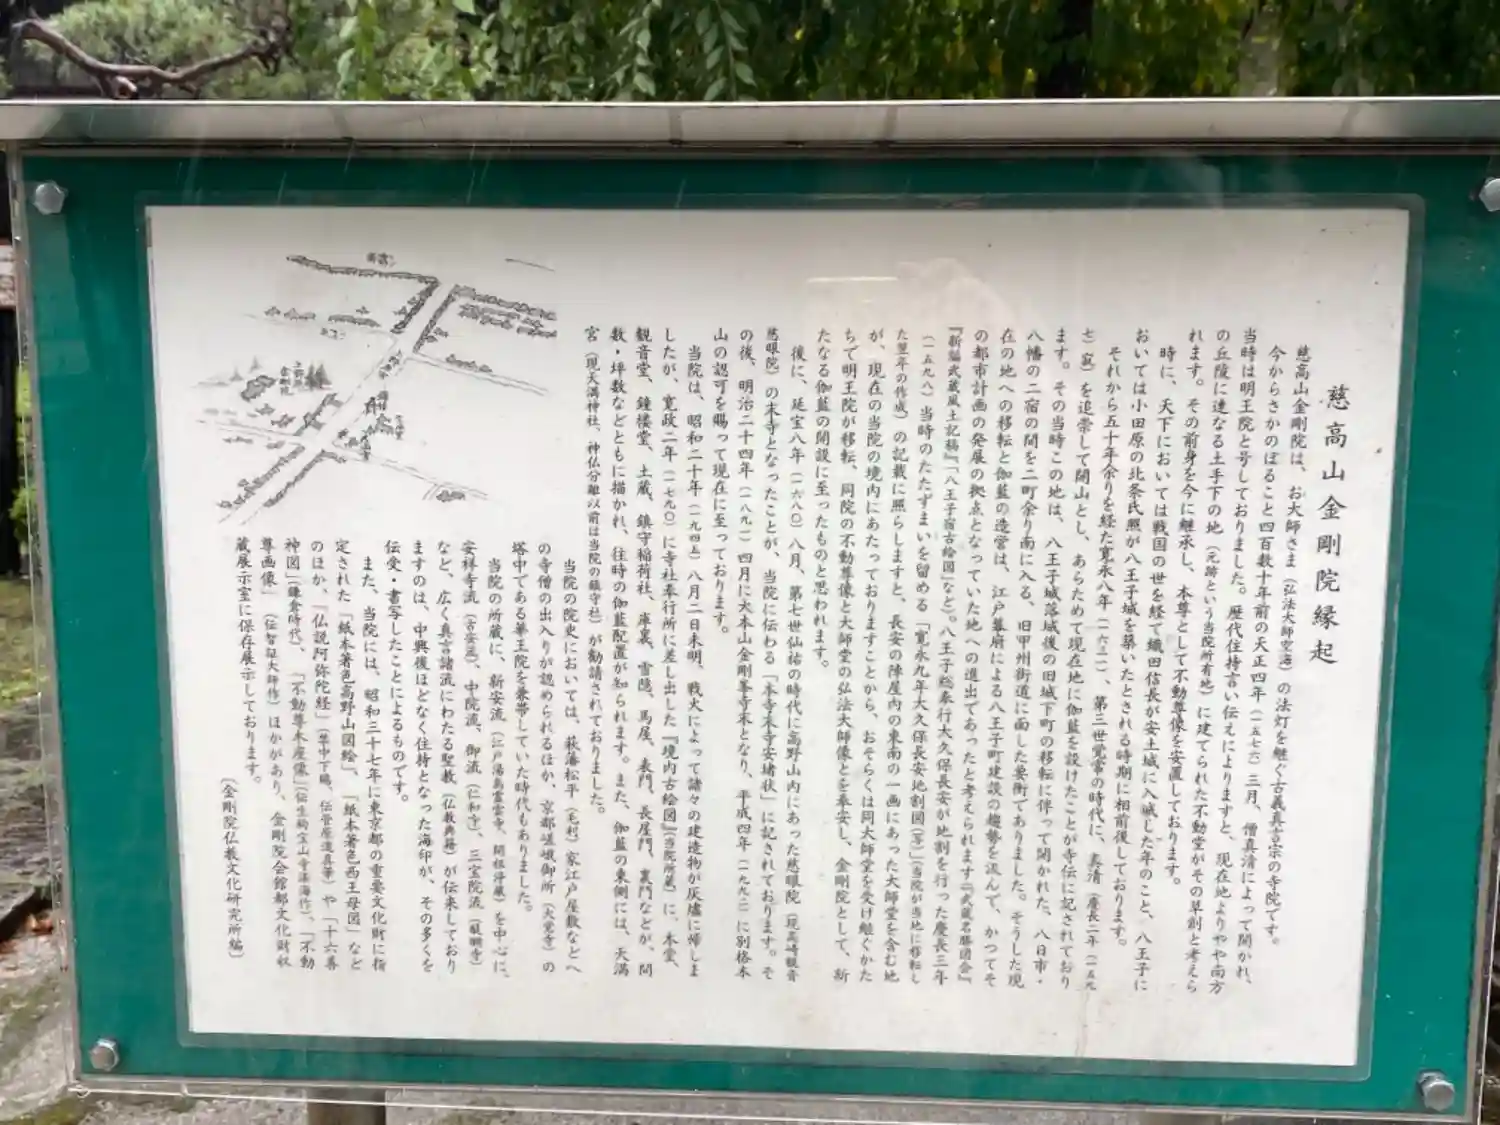 慈高山金剛院縁起
慈高山金剛院は、お大師さま（弘法大師空海）の法灯を継ぐ古義真言宗の寺院です。
今からさかのぼること四百数十年前の天正四年（一五七六）三月、僧真清によって開かれ、
当時は明王院と号しておりました。歴代住持言い伝えによりますと、現在地よりやや南方
の丘陵に連なる土手下の地（元跡という当院所有地）に建てられた不動堂がその草創と考えら
れます。その前身を今に継承し、本尊として不動尊像を安置しております。
時に、天下においては戦国の世を経て織田信長が安土城に入城した年のこと、八王子に
おいては小田原の北条氏照が八王子城を築いたとされる時期に相前後しております。
それから五十年余りを経た寛永八年（一六三一）、第三世覚常の時代に、真清（慶長二年（一五九
七）寂）を追崇して開山とし、あらためて現在地に伽藍を設けたことが寺伝に記されており
ます。その当時この地は、八王子城落城後の旧城下町の移転に伴って開かれた、八日市・
八幡の二宿の間を二町余り南に入る、旧甲州街道に面した要衝でありました。そうした現
在の地への移転と伽藍の造営は、江戸幕府による八王子町建設の趨勢を汲んで、かつてそ
の都市計画の発展の拠点となっていた地への進出であったと考えられます（『武蔵名勝図会』
『新編武蔵風土記稿』「八王子宿古絵図」など）。八王子総奉行大久保長安が地割を行った慶長三年
（一五九八）当時のたたずまいを留める「寛永九年大久保長安地割図（写）」（当院が当地に移転し
た翌年の作成）の記載に照らしますと、長安の陣屋内の東南の一画にあった大師堂を含む地
が、現在の当院の境内にあたっておりますことから、おそらくは同大師堂を受け継ぐかた
ちで明王院が移転、同院の不動尊像と大師堂の弘法大師像とを奉安し、金剛院として、新
たなる伽藍の開設に至ったものと思われます。
後に、延宝八年（一六八〇）八月、第七世仙祐の時代に高野山内にあった慈眼院（現高崎観音
慈眼院）の末寺となったことが、当院に伝わる「本寺末寺安堵状」に記されております。そ
の後、明治二十四年（一八九一）四月に大本山金剛峯寺末となり、平成四年（一九九二）に別格本
山の認可を賜って現在に至っております。
当院は、昭和二十年（一九四五）八月二日未明、戦火によって諸々の建造物が灰墟に帰しま
したが、寛政二年（一七九〇）に寺社奉行所に差し出した『境内古絵図』（当院所蔵）に、本堂、
観音堂、鐘楼堂、土蔵、鎮守稲荷社、庫裏、雪隠、馬屋、表門、長屋門、裏門などが、間
数・坪数などとともに描かれ、往時の伽藍配置が知られます。また、伽藍の東側には、天満
宮（現天満神社、神仏分離以前は当院の鎮守社）が勧請されておりました。
当院の院史においては、萩藩松平（毛利）家江戸屋敷などへ
の寺僧の出入りが認められるほか、京都嵯峨御所（大覚寺）の
塔中である華王院を兼帯していた時代もありました。
当院の所蔵に、新安流（江戸湯島霊雲寺、開祖浄厳）を中心に、
安祥寺流（古安流）、中院流、御流（仁和寺）、三宝院流（醍醐寺）
など、広く真言諸流にわたる聖教（仏教典籍）が伝来しており
ますのは、中興後ほどなく住持となった海印が、その多くを
伝受・書写したことによるものです。
また、当院には、昭和三十七年に東京都の重要文化財に指
定された「紙本著色高野山図絵」、「紙本著色西王母図」など
のほか、『仏説阿弥陀経』（巻中下賜、伝菅原道真筆）や「十六善
神図」（鎌倉時代）、「不動尊木座像」（伝生駒宝山寺湛海作）、「不動
尊画像」（伝智証大師作）ほかがあり、金剛院会館都文化財収
蔵展示室に保存展示しております。
（金剛院仏教文化研究所編）
金剛院